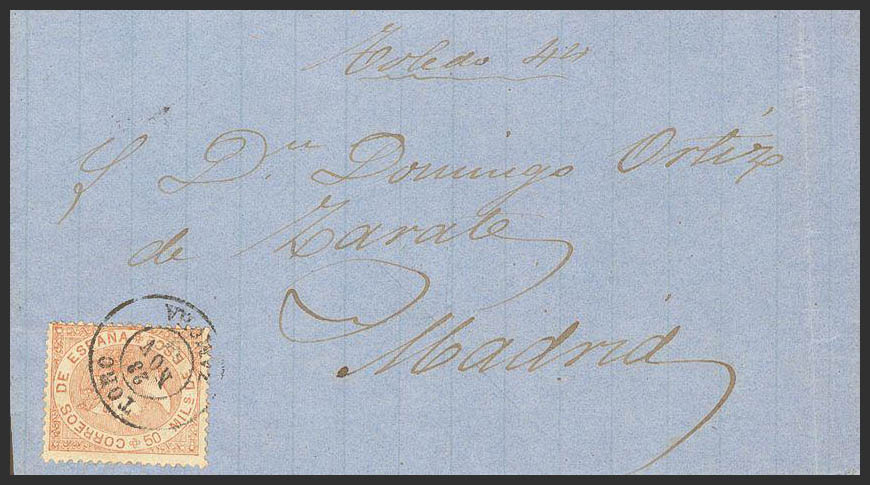 Toledo 44
S Dn Domingo Ortiz
de Zarate
Madrid
CORREOS DE ESPAÑA
50 MILS
TORO
23
NOV
ZAMORA